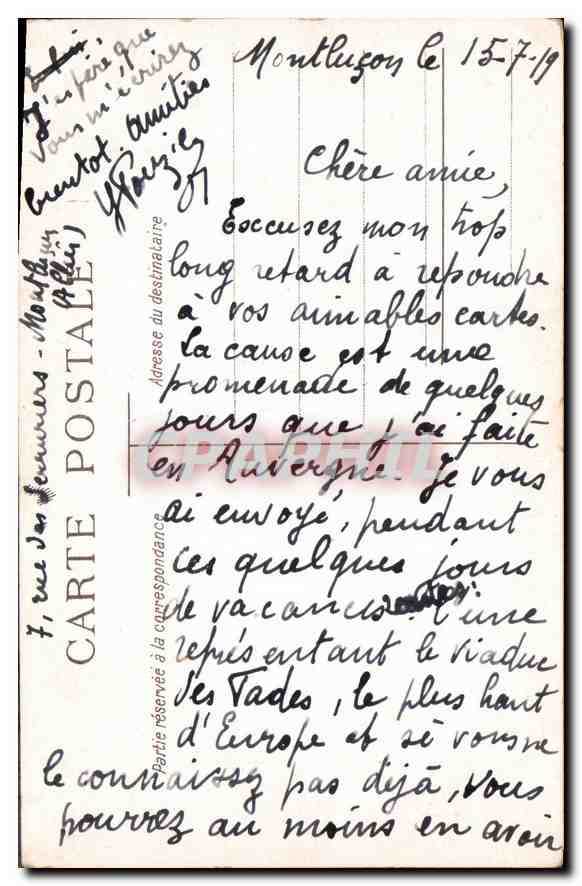 Montluçon le 15-7-19
Chère amie,
Excusez mon trop
long retard à repondre
à vos aimables cartes.
La cause est une
promenade de quelques
jours que j'ai faite
en Auvergne. Je vous
ai envoyé, pendant
ces quelques jours
de vacances l'une
représentant le viaduc
des Fades, le plus haut
d'Europe et si vous ne
le connaissez pas déjà, vous
pourrez au moins en avoir
J'espère que
vous m'écrirez
bientot. Amitiés
7, rue des Serruriers - Montluçon
(Allier)
CARTE POSTALE
Adresse du destinataire
Partie réservée à la correspondance
CPAPHIL